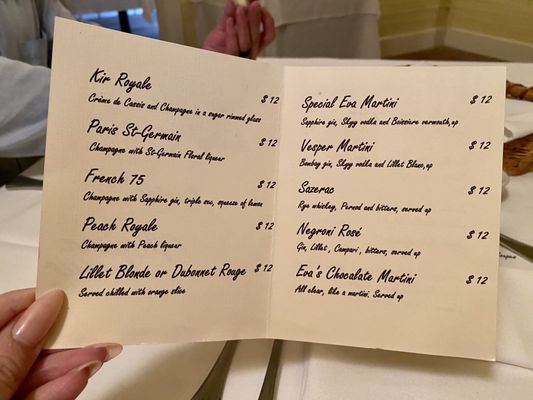 Kir Royale $12
Crème de Cassis and Champagne in a sugar rimmed glass
Paris St-Germain $12
Champagne with St-Germain Floral liqueur
French 75 $12
Champagne with Sapphire gin, triple sec, squeeze of lemon
Peach Royale $12
Champagne with Peach liqueur
Lillet Blonde or Dubonnet Rouge $12
Served chilled with orange slice
Special Eva Martini $12
Sapphire gin, Skyy vodka and Boissiere vermouth, up
Vesper Martini $12
Bombay gin, Skyy vodka and Lillet Blanc, up
Sazerac $12
Rye whiskey, Pernod and bitters, served up
Negroni Rosé $12
Gin, Lillet, Campari, bitters, served up
Eva's Chocolate Martini $12
All clear, like a martini. Served up